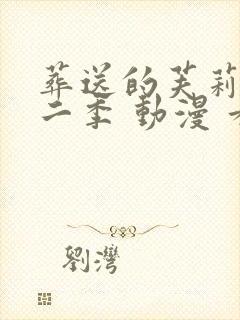 葬送的芙莉
二季 動漫
劉灣